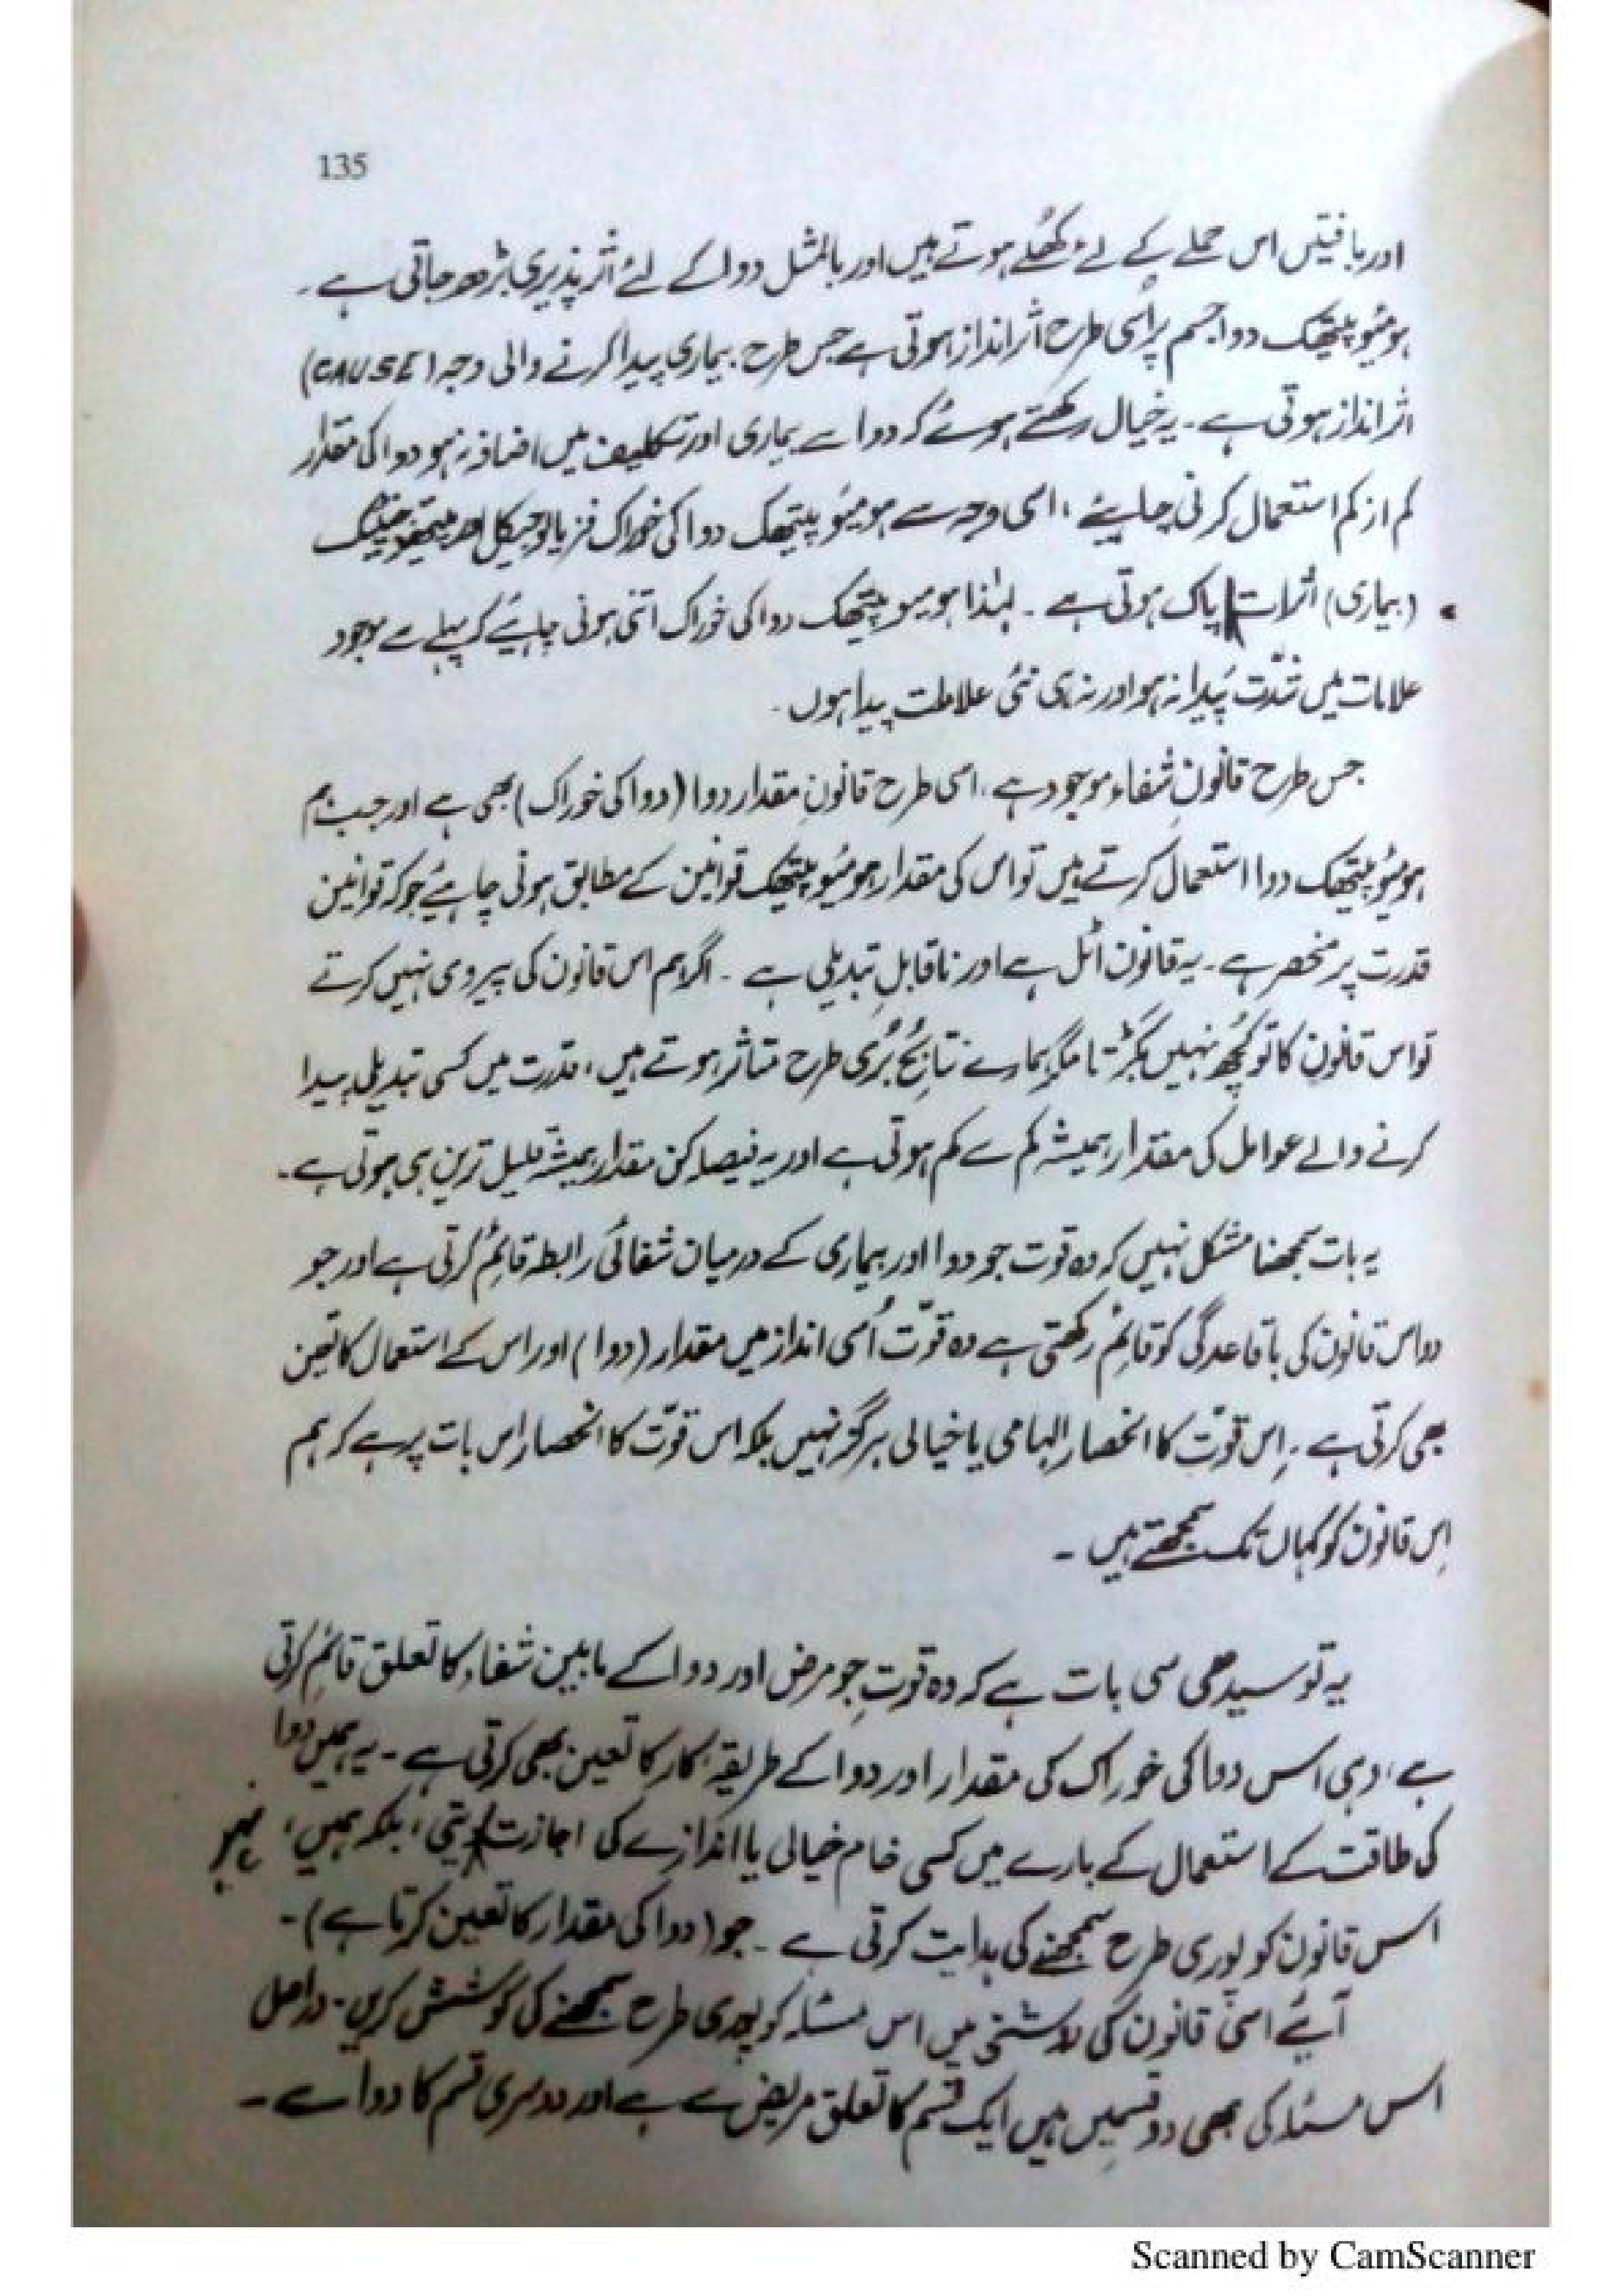 135
اور بافتیں اس حملے کے لئے کھُلے ہوتے ہیں اور بالمثل دوا کے لئے اثر پذیری بڑھ جاتی ہے۔
ہومیوپیتھک دوا جسم پر اُسی طرح اثر انداز ہوتی ہے جس طرح بیماری پیدا کرنے والی وجہ (CAUSE)
اثر انداز ہوتی ہے۔ یہ خیال رکھتے ہوئے کہ دوا سے بیماری اور تکلیف میں اضافہ نہ ہو دوا کی مقدار
کم از کم استعمال کرنی چاہیئے، اسی وجہ سے ہومیوپیتھک دوا کی خوراک فزیالوجیکل اور
(بیماری) اثرات پاک ہوتی ہے۔ لہٰذا ہومیوپیتھک دوا کی خوراک اتنی ہونی چاہیئے کہ پہلے سے موجود
علامات میں شدّت پیدا نہ ہو اور نہ ہی نئی علامات پیدا ہوں۔
جس طرح قانونِ شفاء موجود ہے، اسی طرح قانونِ مقدار دوا (دوا کی خوراک) بھی ہے اور جب ہم
ہومیوپیتھک دوا استعمال کرتے ہیں تو اس کی مقدار ہومیوپیتھک قوانین کے مطابق ہونی چاہیئے جو کہ قوانین
قدرت پر منحصر ہے۔ یہ قانون اٹل ہے اور ناقابلِ تبدیلی ہے۔ اگر ہم اس قانون کی پیروی نہیں کرتے
تو اس قانون کا تو کچھ نہیں بگڑتا مگر ہمارے نتائج بُری طرح متاثر ہوتے ہیں، قدرت میں کسی تبدیلی پیدا
کرنے والے عوامل کی مقدار ہمیشہ کم سے کم ہوتی ہے اور یہ فیصلہ کن مقدار ہمیشہ قلیل ترین ہی ہوتی ہے۔
یہ بات سمجھنا مشکل نہیں کہ وہ قوت جو دوا اور بیماری کے درمیان شفائی رابطہ قائم کرتی ہے اور جو
دو اس قانون کی باقاعدگی کو قائم رکھتی ہے وہ قوّت اُسی انداز میں مقدار (دوا) اور اس کے استعمال کا تعین
بھی کرتی ہے۔ اِس قوّت کا انحصار الہامی یا خیالی ہرگز نہیں بلکہ اس قوّت کا انحصار اس بات پر ہے کہ ہم
اِس قانون کو کہاں تک سمجھتے ہیں۔
یہ تو سیدھی سی بات ہے کہ وہ قوت جو مرض اور دوا کے مابین شفاء کا تعلق قائم کرتی
ہے، وہی اس دوا کی خوراک کی مقدار اور دوا کے طریقہ کار کا تعین بھی کرتی ہے۔ یہ ہمیں دوا
کی طاقت کے استعمال کے بارے میں کسی خام خیالی یا اندازے کی اجازت نہیں دیتی، بلکہ ہمیں،
اس قانون کو پوری طرح سمجھنے کی ہدایت کرتی ہے۔ جو (دوا کی مقدار کا تعین کرتا ہے)۔
آیئے اسی قانون کی روشنی میں اس مسئلہ کو پوری طرح سمجھنے کی کوشش کریں۔ دراصل
اس مسئلہ کی بھی دو قسمیں ہیں ایک قسم کا تعلق مریض سے ہے اور دوسری قسم کا دوا سے۔
Scanned by CamScanner